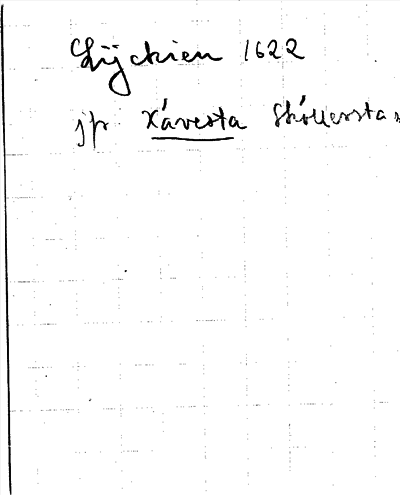 Lÿckien 1622
jfr Xávesta Skóllersta